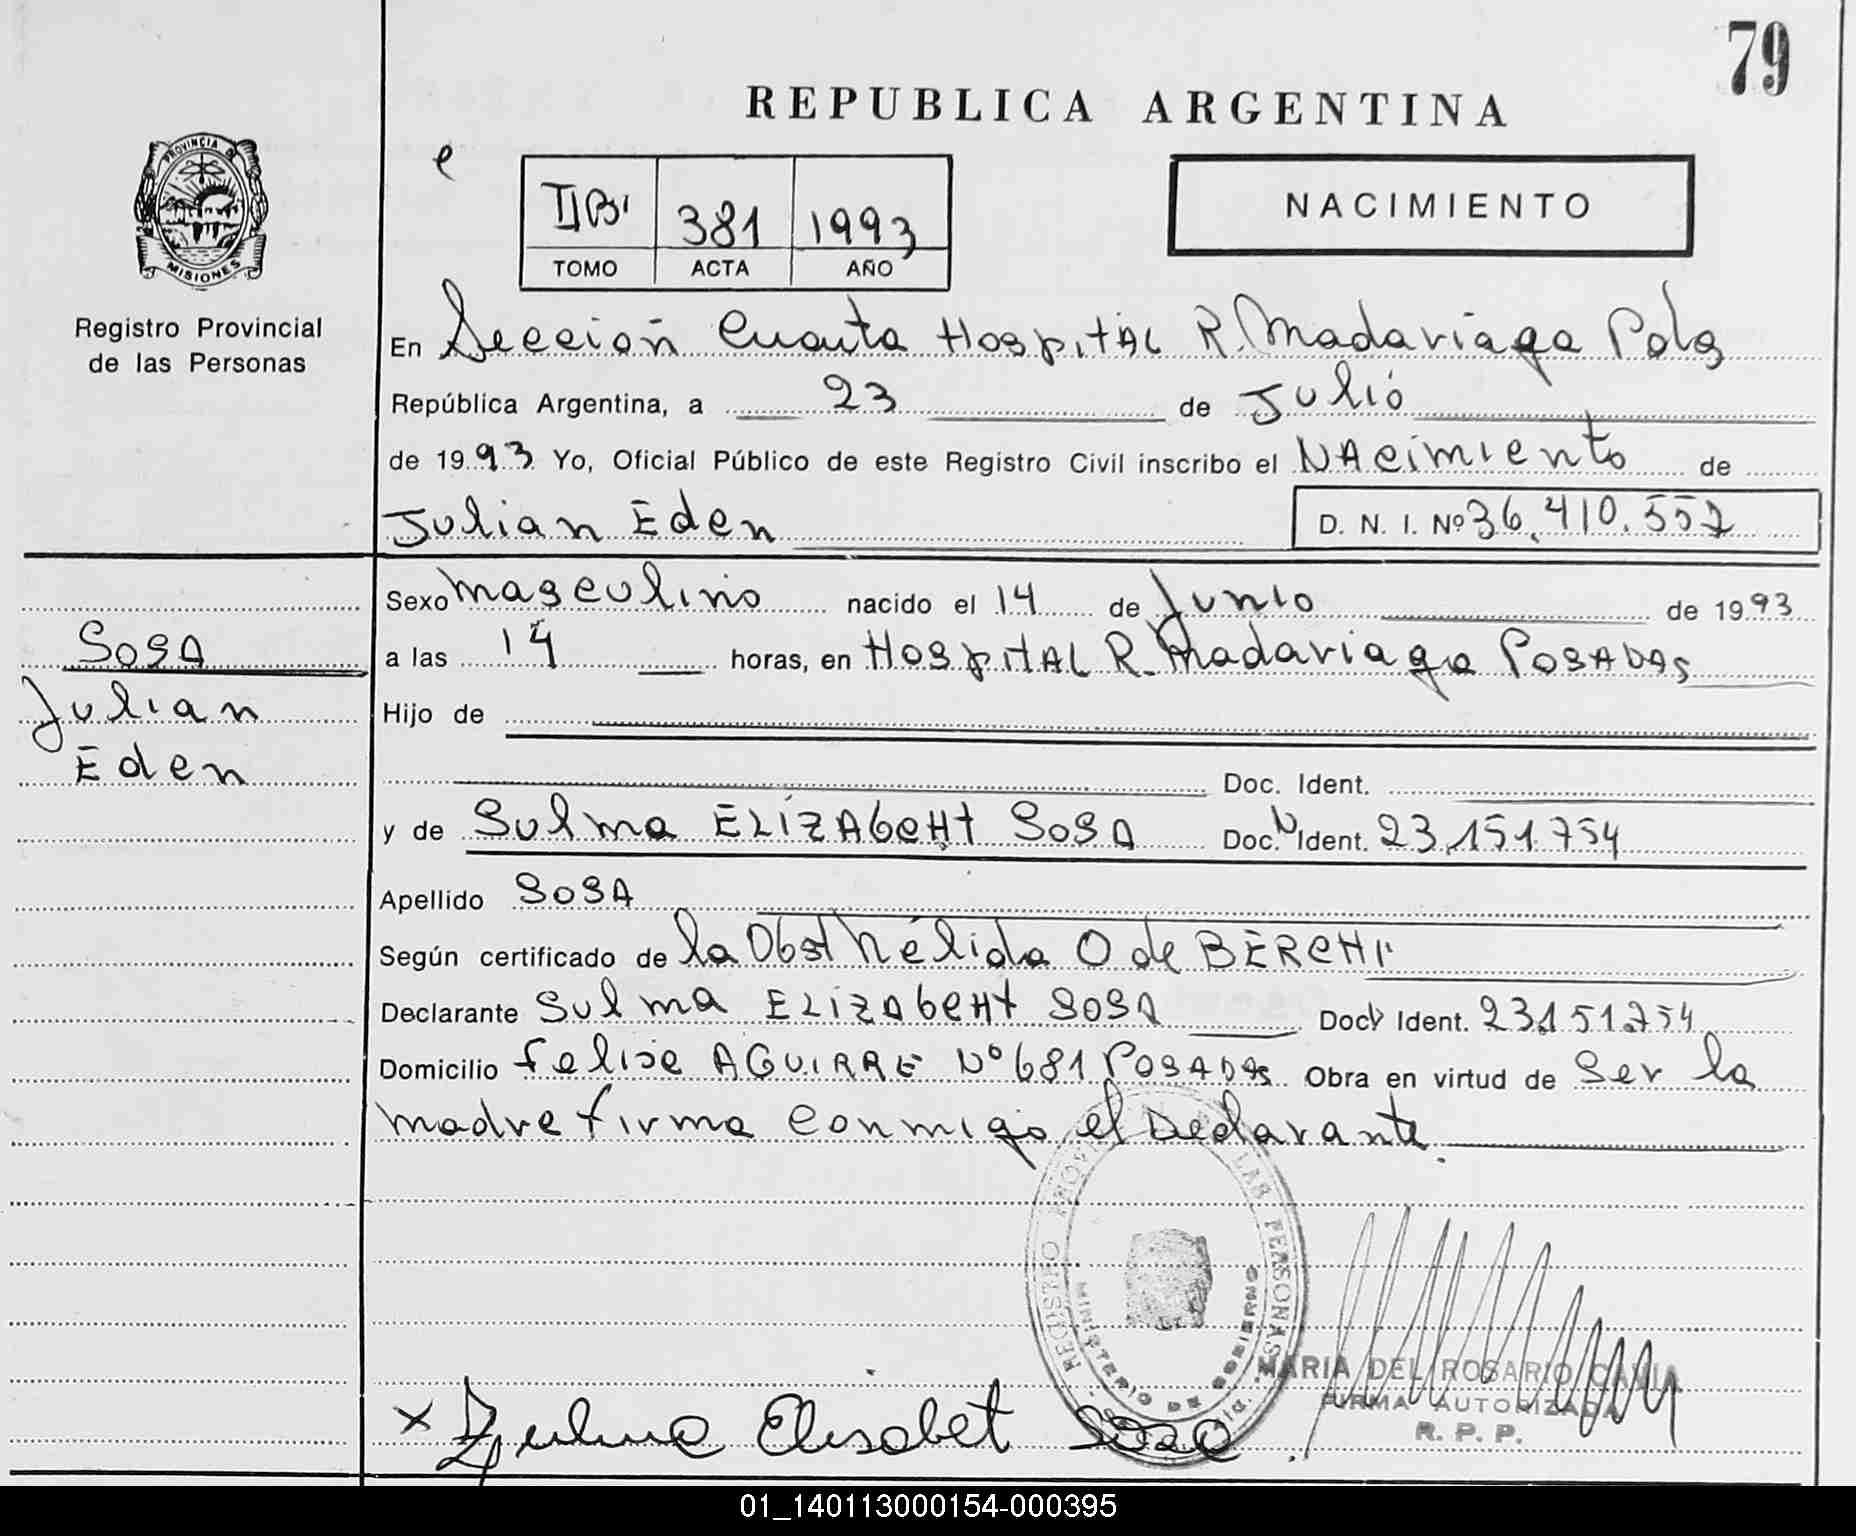 79
REPUBLICA ARGENTINA
PROVINCIA DE
MISIONES
Registro Provincial
de las Personas
e
381 1993
TOMO ACTA AÑO
NACIMIENTO
En Sección Cuarta Hospital R. Madariaga Pdas
República Argentina, a 23 de Julio
de 1993 Yo, Oficial Público de este Registro Civil inscribo el Nacimiento de
Julian Eden D. N. I. Nº 36.410.557
Sexo masculino nacido el 14 de Junio de 1993
SOSA
Julian
Eden
a las 14 horas, en Hospital R. Madariaga Posadas
Hijo de
Doc. Ident.
y de Sulma ELIZAbeHt SOSA Doc. N Ident. 23.151.754
Apellido SOSA
Según certificado de la Obst Nélida O de BERCHI
Declarante Sulma ELIZAbeHt SOSA Doc Ident. 23.151.754
Domicilio Felise AGUIRRE Nº 681 POSADAS Obra en virtud de Ser la
madre firma conmigo el Declarante.
REGISTRO LAS PERSONAS
MINISTERIO DE GOBIERNO
MARIA DEL ROSARIO
FIRMA AUTORIZADA
R. P. P.
x Zulma Elisabet Sosa
01_140113000154-000395